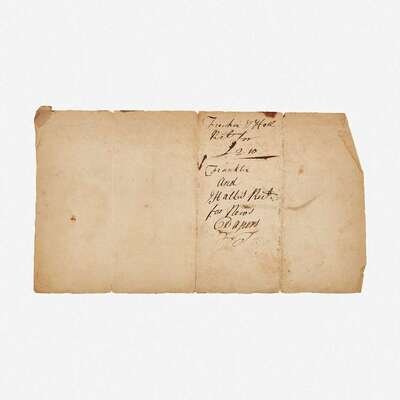 Franklin & Hall
Rect for
£2.10
Franklin
And
Halls Rect
for News
Papers